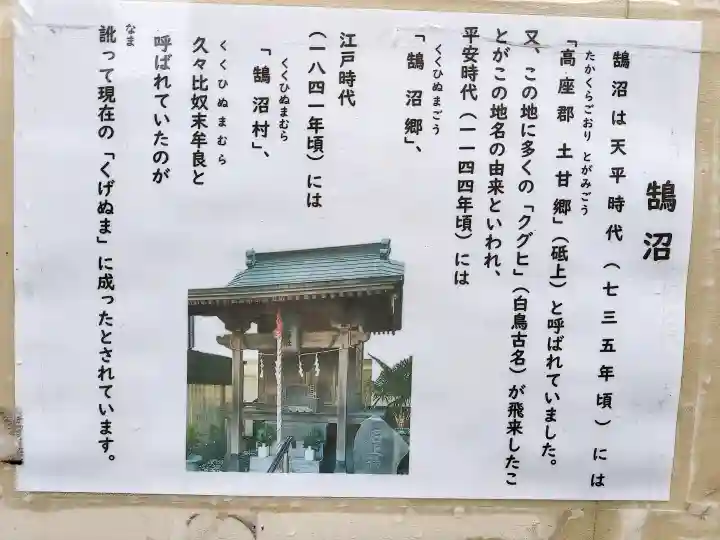 鵠沼
鵠沼は天平時代（七三五年頃）には
たかくらごおり とがみごう
「高座郡 土甘郷」（砥上）と呼ばれていました。
又、この地に多くの「クグヒ」（白鳥古名）が飛来したこ
とがこの地名の由来といわれ、
平安時代（一一四四年頃）には
くくひぬまごう
「鵠沼郷」、
江戸時代
（一八四一年頃）には
くくひぬまむら
「鵠沼村」、
くくひぬまむら
久々比奴末牟良と
呼ばれていたのが
なま
訛って現在の「くげぬま」に成ったとされています。